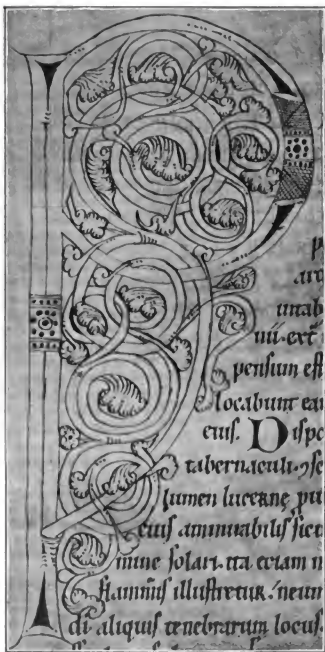 P
aro
untab
nii. ext
pensum est
locabunt ea
eius. Dispo
tabernaculi. ⁊ sic
lumen lucerne
eius amminabilis sicu
mine solari. ita eciam n
flammis illustretur. neum
di aliquis tenebrarum locus.